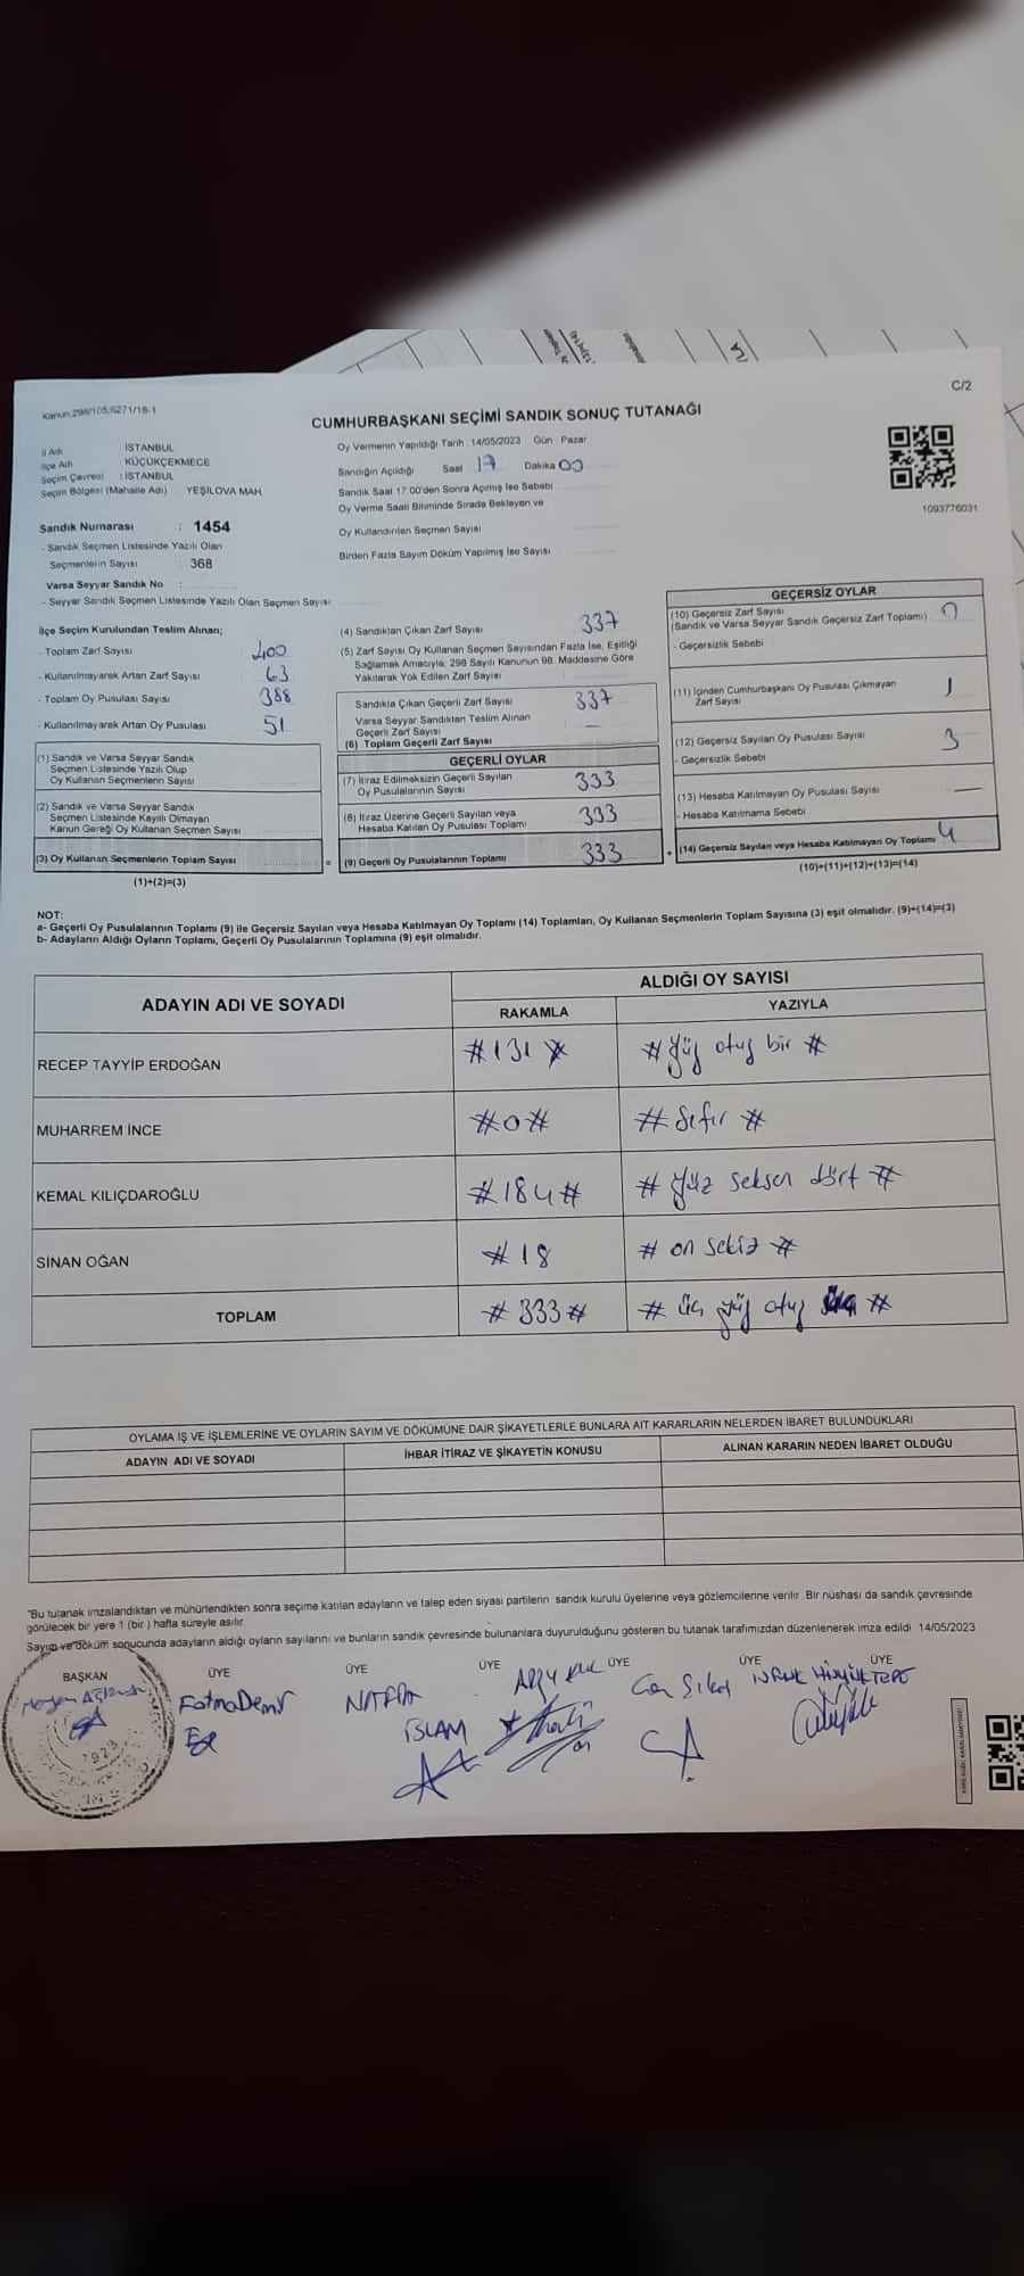 C/2
Kanun:298/105,6271/18-1
CUMHURBAŞKANI SEÇİMİ SANDIK SONUÇ TUTANAĞI
İl Adı İSTANBUL
İlçe Adı KÜÇÜKÇEKMECE
Seçim Çevresi : İSTANBUL
Seçim Bölgesi (Mahalle Adı) YEŞİLOVA MAH.
Oy Vermenin Yapıldığı Tarih : 14/05/2023 Gün : Pazar
Sandığın Açıldığı Saat 17 Dakika 00
Sandık Saat 17:00'den Sonra Açılmış İse Sebebi
Oy Verme Saati Bitiminde Sırada Bekleyen ve
Oy Kullandırılan Seçmen Sayısı
Birden Fazla Sayım Döküm Yapılmış İse Sayısı
1093776031
Sandık Numarası : 1454
- Sandık Seçmen Listesinde Yazılı Olan
Seçmenlerin Sayısı 368
Varsa Seyyar Sandık No :
- Seyyar Sandık Seçmen Listesinde Yazılı Olan Seçmen Sayısı
İlçe Seçim Kurulundan Teslim Alınan;
- Toplam Zarf Sayısı 400
- Kullanılmayarak Artan Zarf Sayısı 63
- Toplam Oy Pusulası Sayısı 388
- Kullanılmayarak Artan Oy Pusulası 51
(1) Sandık ve Varsa Seyyar Sandık
Seçmen Listesinde Yazılı Olup
Oy Kullanan Seçmenlerin Sayısı
(2) Sandık ve Varsa Seyyar Sandık
Seçmen Listesinde Kayıtlı Olmayan
Kanun Gereği Oy Kullanan Seçmen Sayısı
(3) Oy Kullanan Seçmenlerin Toplam Sayısı =
(1)+(2)=(3)
(4) Sandıktan Çıkan Zarf Sayısı 337
(5) Zarf Sayısı Oy Kullanan Seçmen Sayısından Fazla İse, Eşitliği
Sağlamak Amacıyla, 298 Sayılı Kanunun 98. Maddesine Göre
Yakılarak Yok Edilen Zarf Sayısı
Sandıkta Çıkan Geçerli Zarf Sayısı 337
Varsa Seyyar Sandıktan Teslim Alınan
Geçerli Zarf Sayısı —
(6) Toplam Geçerli Zarf Sayısı
GEÇERLİ OYLAR
(7) İtiraz Edilmeksizin Geçerli Sayılan
Oy Pusulalarının Sayısı 333
(8) İtiraz Üzerine Geçerli Sayılan veya
Hesaba Katılan Oy Pusulası Toplamı 333
(9) Geçerli Oy Pusulalarının Toplamı 333 +
GEÇERSİZ OYLAR
(10) Geçersiz Zarf Sayısı
(Sandık ve Varsa Seyyar Sandık Geçersiz Zarf Toplamı) 0
- Geçersizlik Sebebi
(11) İçinden Cumhurbaşkanı Oy Pusulası Çıkmayan
Zarf Sayısı 1
(12) Geçersiz Sayılan Oy Pusulası Sayısı 3
- Geçersizlik Sebebi
(13) Hesaba Katılmayan Oy Pusulası Sayısı —
- Hesaba Katılmama Sebebi
(14) Geçersiz Sayılan veya Hesaba Katılmayan Oy Toplamı 4
(10)+(11)+(12)+(13)=(14)
NOT:
a- Geçerli Oy Pusulalarının Toplamı (9) ile Geçersiz Sayılan veya Hesaba Katılmayan Oy Toplamı (14) Toplamları, Oy Kullanan Seçmenlerin Toplam Sayısına (3) eşit olmalıdır. (9)+(14)=(3)
b- Adayların Aldığı Oyların Toplamı, Geçerli Oy Pusulalarının Toplamına (9) eşit olmalıdır.
ADAYIN ADI VE SOYADI ALDIĞI OY SAYISI
RAKAMLA YAZIYLA
RECEP TAYYİP ERDOĞAN #131# #Yüz otuz bir#
MUHARREM İNCE #0# #Sıfır#
KEMAL KILIÇDAROĞLU #184# #Yüz seksen dört#
SİNAN OĞAN #18 #on sekiz#
TOPLAM #333# #üç yüz otuz üç#
OYLAMA İŞ VE İŞLEMLERİNE VE OYLARIN SAYIM VE DÖKÜMÜNE DAİR ŞİKAYETLERLE BUNLARA AİT KARARLARIN NELERDEN İBARET BULUNDUKLARI
ADAYIN ADI VE SOYADI İHBAR İTİRAZ VE ŞİKAYETİN KONUSU ALINAN KARARIN NEDEN İBARET OLDUĞU
"Bu tutanak imzalandıktan ve mühürlendikten sonra seçime katılan adayların ve talep eden siyasi partilerin sandık kurulu üyelerine veya gözlemcilerine verilir. Bir nüshası da sandık çevresinde
görülecek bir yere 1 (bir) hafta süreyle asılır.
Sayım ve döküm sonucunda adayların aldığı oyların sayılarını ve bunların sandık çevresinde bulunanlara duyurulduğunu gösteren bu tutanak tarafımızdan düzenlenerek imza edildi. 14/05/2023
BAŞKAN ÜYE ÜYE ÜYE ÜYE ÜYE ÜYE
Fatma Demir
İSLAM
1923